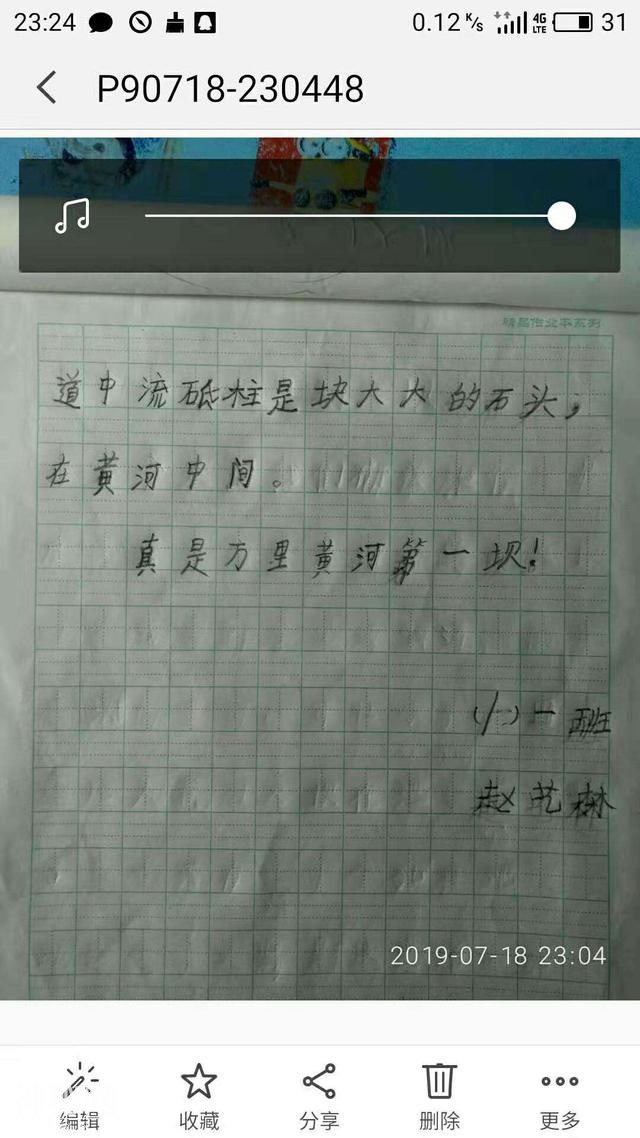 23:24 0.12 K/s 4G LTE 31
P90718-230448
精品作业本系列
道中流砥柱是块大大的石头，
在黄河中间。
真是万里黄河第一坝！
(一)一班
赵艺
2019-07-18 23:04
编辑 收藏 分享 删除 更多